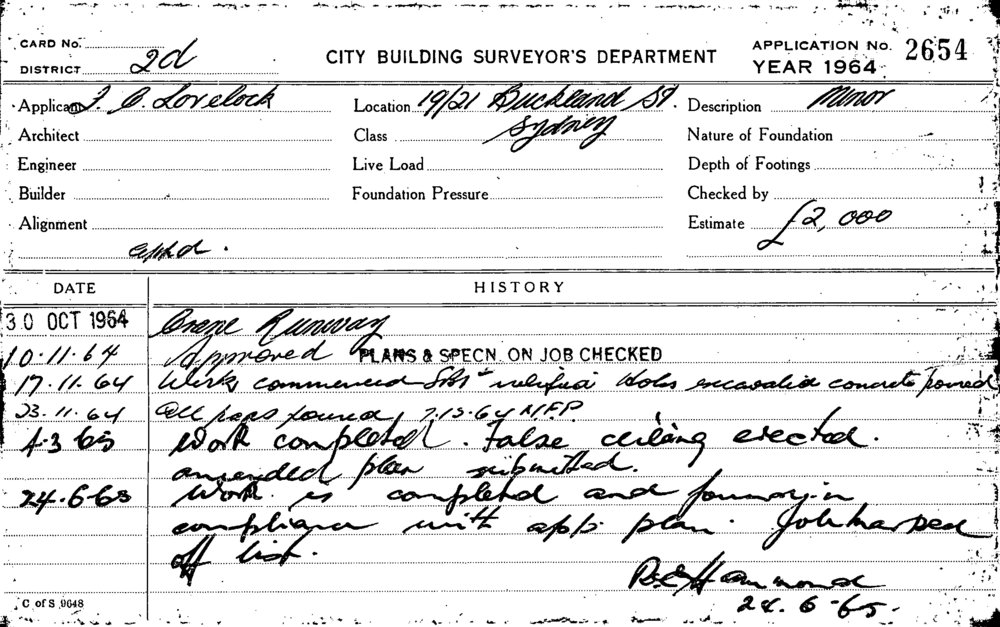 CARD No.
DISTRICT 2d
CITY BUILDING SURVEYOR'S DEPARTMENT
APPLICATION No. 2654
YEAR 1964
Applicant J. C. Lovelock
Location 19/21 Buckland St. Sydney
Description Minor
Architect
Class
Nature of Foundation
Engineer
Live Load
Depth of Footings
Builder
Foundation Pressure
Checked by
Alignment
Estimate £2,000
appd.
DATE
HISTORY
30 OCT 1964 Crane Runway
10.11.64 Approved PLANS & SPECN. ON JOB CHECKED
17.11.64 Works commenced Holes excavated concrete poured
23.11.64 All poured 7.12.64 NFP
4.3.65 Work completed. False ceiling erected.
amended plan submitted.
24.6.65 Work is completed and found in
compliance with app. plan. Job marked
off list.
Hammond
24.6.65.
C of S 9648